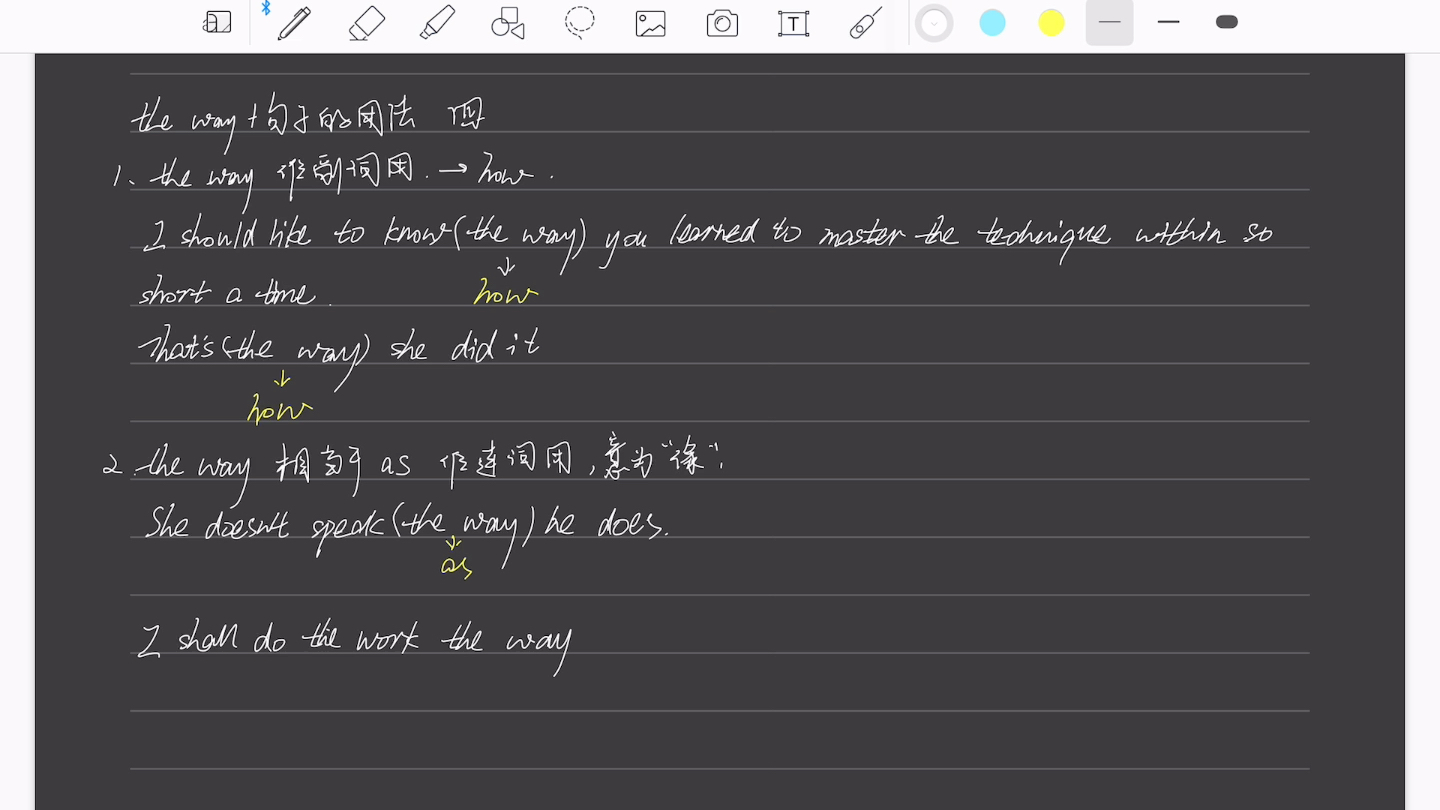 the way+句子的用法 四
1、the way 作副词用.→how.
I should like to know(the way) you learned to master the technique within so
short a time. how
That's(the way) she did it
how
2.the way 相当于 as 作连词用,意为"像".
She doesn't speak(the way)he does.
as
I shall do the work the way